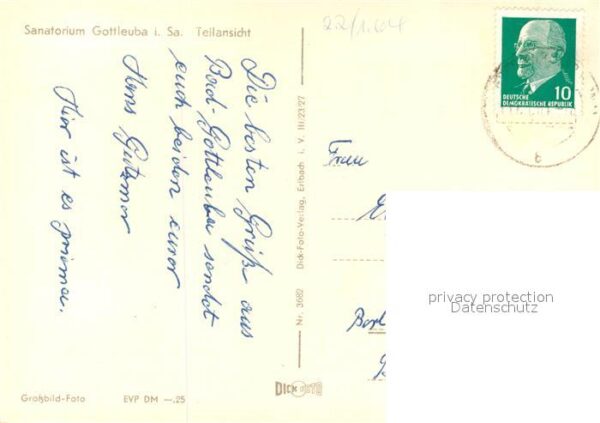 Sanatorium Gottleuba i. Sa. Teilansicht
22/1.64
Die besten Grüße aus
Bad-Gottleuba sendet
euch beiden euer
Hans
Hier ist es prima.
Großbild-Foto EVP DM —.25
Nr. 3682 Dick-Foto-Verlag, Erlbach i. V. III/23/27
DICK FOTO
10
DEUTSCHE
DEMOKRATISCHE REPUBLIK
Frau
privacy protection
Datenschutz